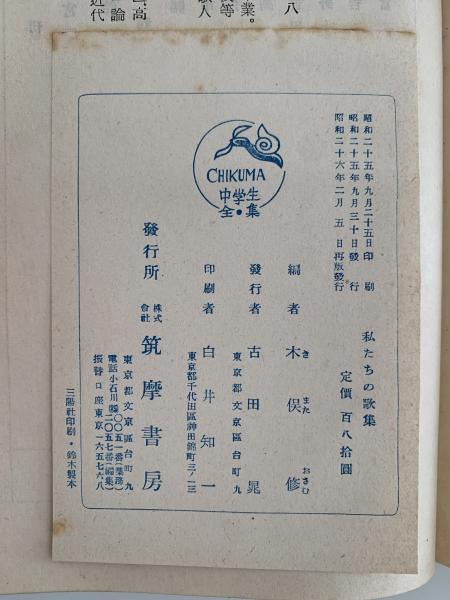 昭和二十五年九月二十五日印刷
昭和二十五年九月三十日發行
昭和二十六年二月五日再版發行
私たちの歌集
定價 百八拾圓
編者 木俣修
き また おさむ
發行者 古田晁
東京都文京區台町九
印刷者 白井知一
東京都千代田區神田錦町三ノ一三
發行所 株式會社 筑摩書房
東京都文京區台町九
電話小石川
振替口座東京一六五七六八
CHIKUMA
中学生
全・集
三陽社印刷・鈴木製本
八
業。
高
論
近代